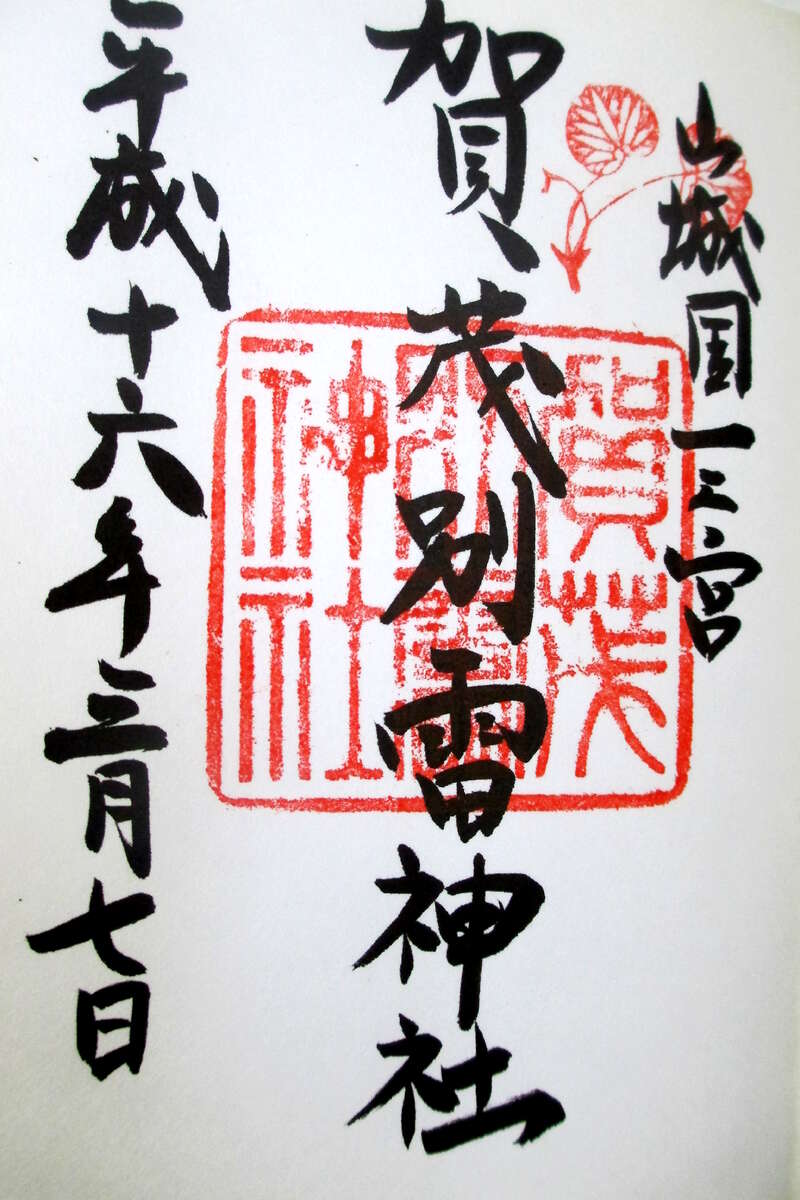 山城国一之宮
賀茂別雷神社
平成十六年三月七日
賀茂
別雷
神社